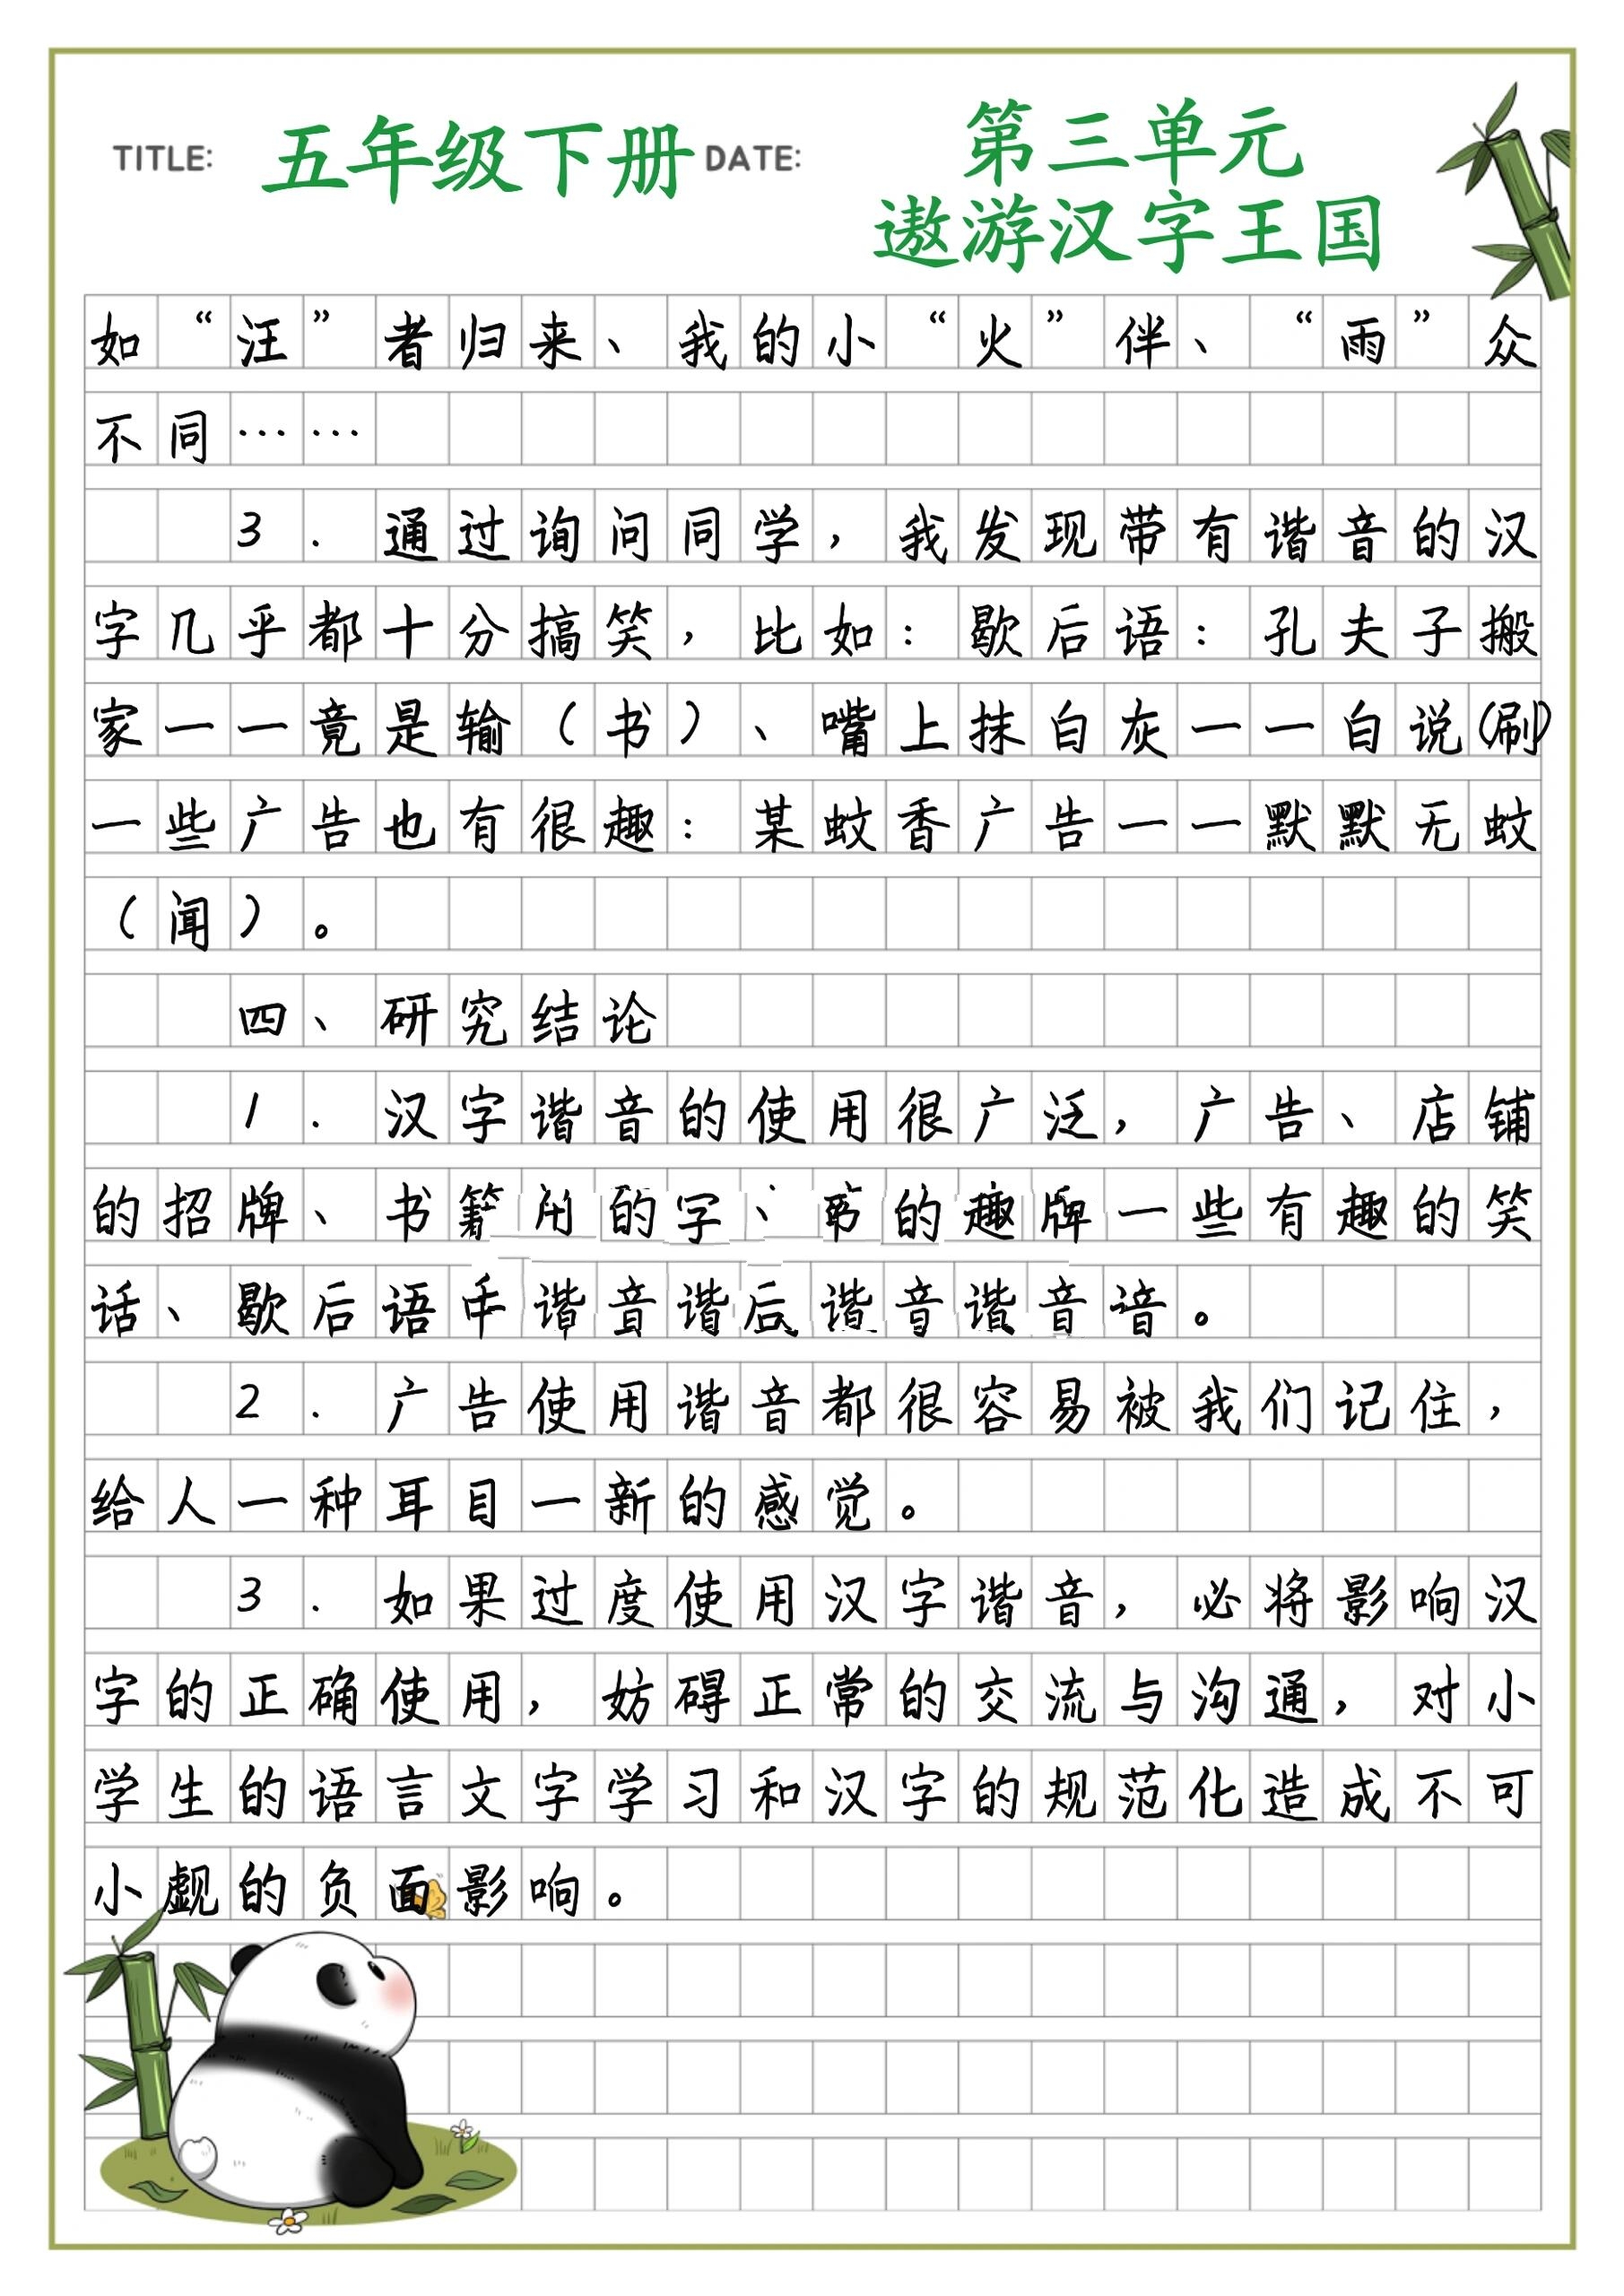 TITLE: 五年级下册 DATE: 第三单元
遨游汉字王国
如“汪”者归来、我的小“火”伴、“雨”众
不同……
3.通过询问同学，我发现带有谐音的汉
字几乎都十分搞笑，比如：歇后语：孔夫子搬
家一一竟是输（书）、嘴上抹白灰一一白说(刷)
一些广告也有很趣：某蚊香广告一一默默无蚊
（闻）。
四、研究结论
1.汉字谐音的使用很广泛，广告、店铺
的招牌、书的字、的趣牌一些有趣的笑
话、歇后语谐音谐后谐音谐音。
2.广告使用谐音都很容易被我们记住，
给人一种耳目一新的感觉。
3.如果过度使用汉字谐音，必将影响汉
字的正确使用，妨碍正常的交流与沟通，对小
学生的语言文字学习和汉字的规范化造成不可
小觑的负面影响。